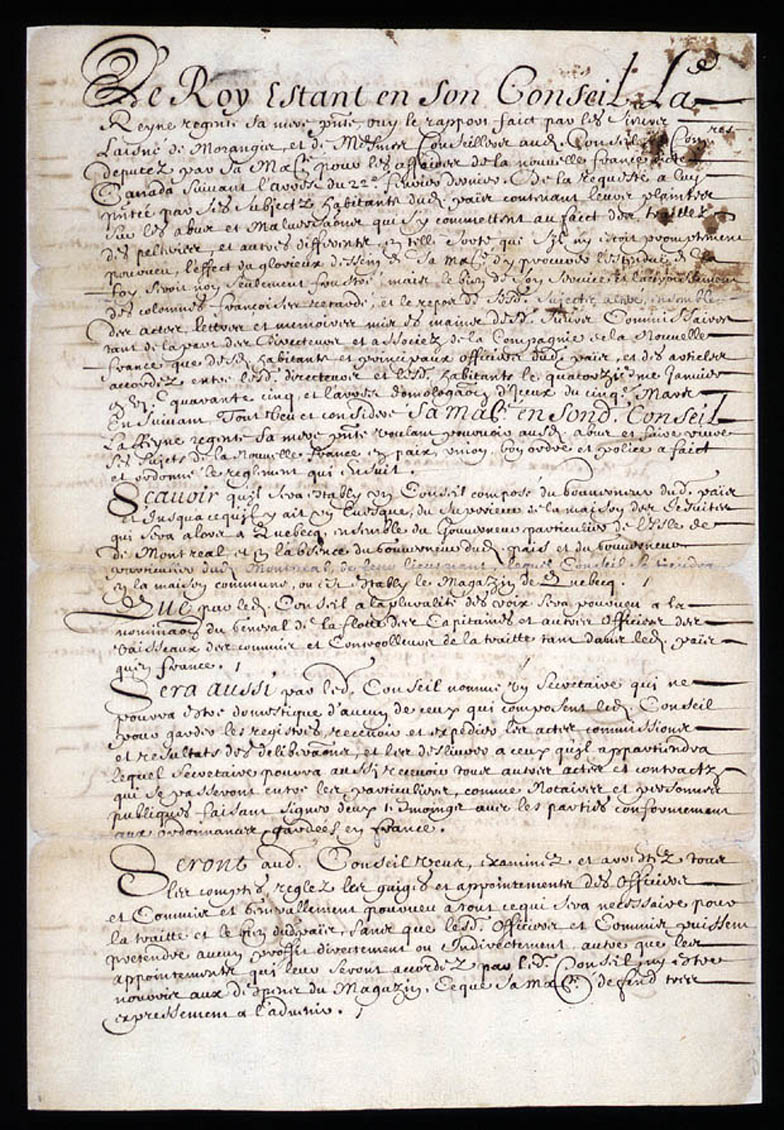 Le Roy Estant en son Conseil La
Reyne regente sa mere pnte, ouy le rapport faict par les Sieurs
Laisné de Morangis, et de Mesmes Conseillers aud. Conseil Comres
deputez par sa Maté pour les affaires de la nouvelle france dicte
Canada suivant l'arrest du 22e. feurier dernier. De la requeste a luy
pntée par ses subjectz habitants dud. pais contenant leurs plaintes
sur les abus et Malversaons qui s'y commettent au faict des traittes
des pelteries, et autres differents, en telle sorte que s'il n'y estoit promptement
pourveu, l'effect du glorieux dessein de sa Maté d'y procurer l'estendue de la
foy seroit non seulement frustré, mais le bien de son service et l'accroissement
des colonnies françoises retardé, et le repos de sesd. sujects alteré, ensemble
des actes, lettres et memoires mis es mains desd. sieurs Commissaires
tant de la part des Directeurs et associez de la Compagnie de la Nouvelle
france que desd. habitants et principaux officiers dud. pais, et des articles
accordez entre lesd. directeurs et lesd. habitants le quatorziesme Janvier
gbi. Cquarante cinq, et l'arrest d'omologaon d'iceux du cinqe. Mars
En suivant, Tout veu et consideré Sa Maté. en sond. Conseil
La Reyne regente sa mere pnte voulant pourvoir ausd. abus et faire vivre
ses sujets de la Nouvelle france en paix, union, bon ordre et police a faict
et ordonné le reglement qui ensuit.
Scavoir qu'il sera estably un Conseil composé du Gouverneur dud. pais
et Jusqu'a cequ'il y ait un Evesque, du superieur de la maison des Jesuites
qui sera alors a Quebecq, ensemble du Gouverneur particulier de l'Isle de
de Montreal, et en l'absence du Gouverneur dud. pais et du Gouverneur
particulier dud. Montreal, de leurs lieutenants, lequel Conseil se tiendra
en la maison commune, ou est estably le Magazin de Quebecq. /
Que par led. Conseil a la pluralité des voix sera pourveu a la
nominaon du General de la flotte des Capitaines et autres Officiers des
vaisseaux des commis et Controolleurs de la traitte tant dans led. pais
qu'en france. /
Sera aussi par led. Conseil nommé un secretaire qui ne
pourra estre domestique d'aucun de ceux qui composent led. Conseil
pour garder les registres, recevoir et expedier les actes, commissions
et resultats des deliberaons, et les deslivrer a ceux qu'il appartiendra
lequel secretaire pourra aussi recevoir tous autres actes et contractz
qui se passeront entre les particuliers, comme Notaires et personnes
publiques faisant signer deux tesmoings avec les parties conformement
aux ordonnances gardées en france.
Seront aud. Conseil veus, examinez et arrestez tous
les comptes, reglez les gaiges et appointements des Officiers
et Commis et Generallement pourveu a tout cequi sera necessaire pour
la traitte et le bien dud. pais, sans que lesd. Officiers et Commis puissent
pretendre aucun proffit directement ou Indirectement, autre que les
appointements qui leur seront accordez par led. Conseil, ny estre
nourris aux despens du Magazin. Ceque sa Maté. defend tres
expressement a l'advenir. /